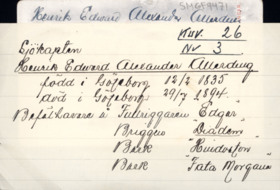 Henrik Edward Alexander Allerding
SMGF9471
Kuv. 26
Nr 3
Sjökapten
Henrik Edward Alexander Allerding
född i Göteborg 12/2 1835
död i Göteborg 29/7 1894
Befälhavare å Tremaggaren "Edgar"
Briggen "Diadem"
Bark "Hindosfon"
Bark "Fata Morgana"